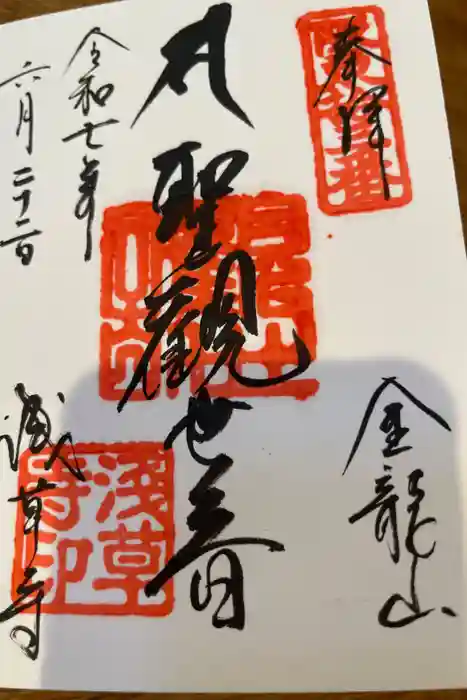 奉拝
金龍山
聖觀世音
令和七年
六月二十二日
淺草寺
淺草
寺印